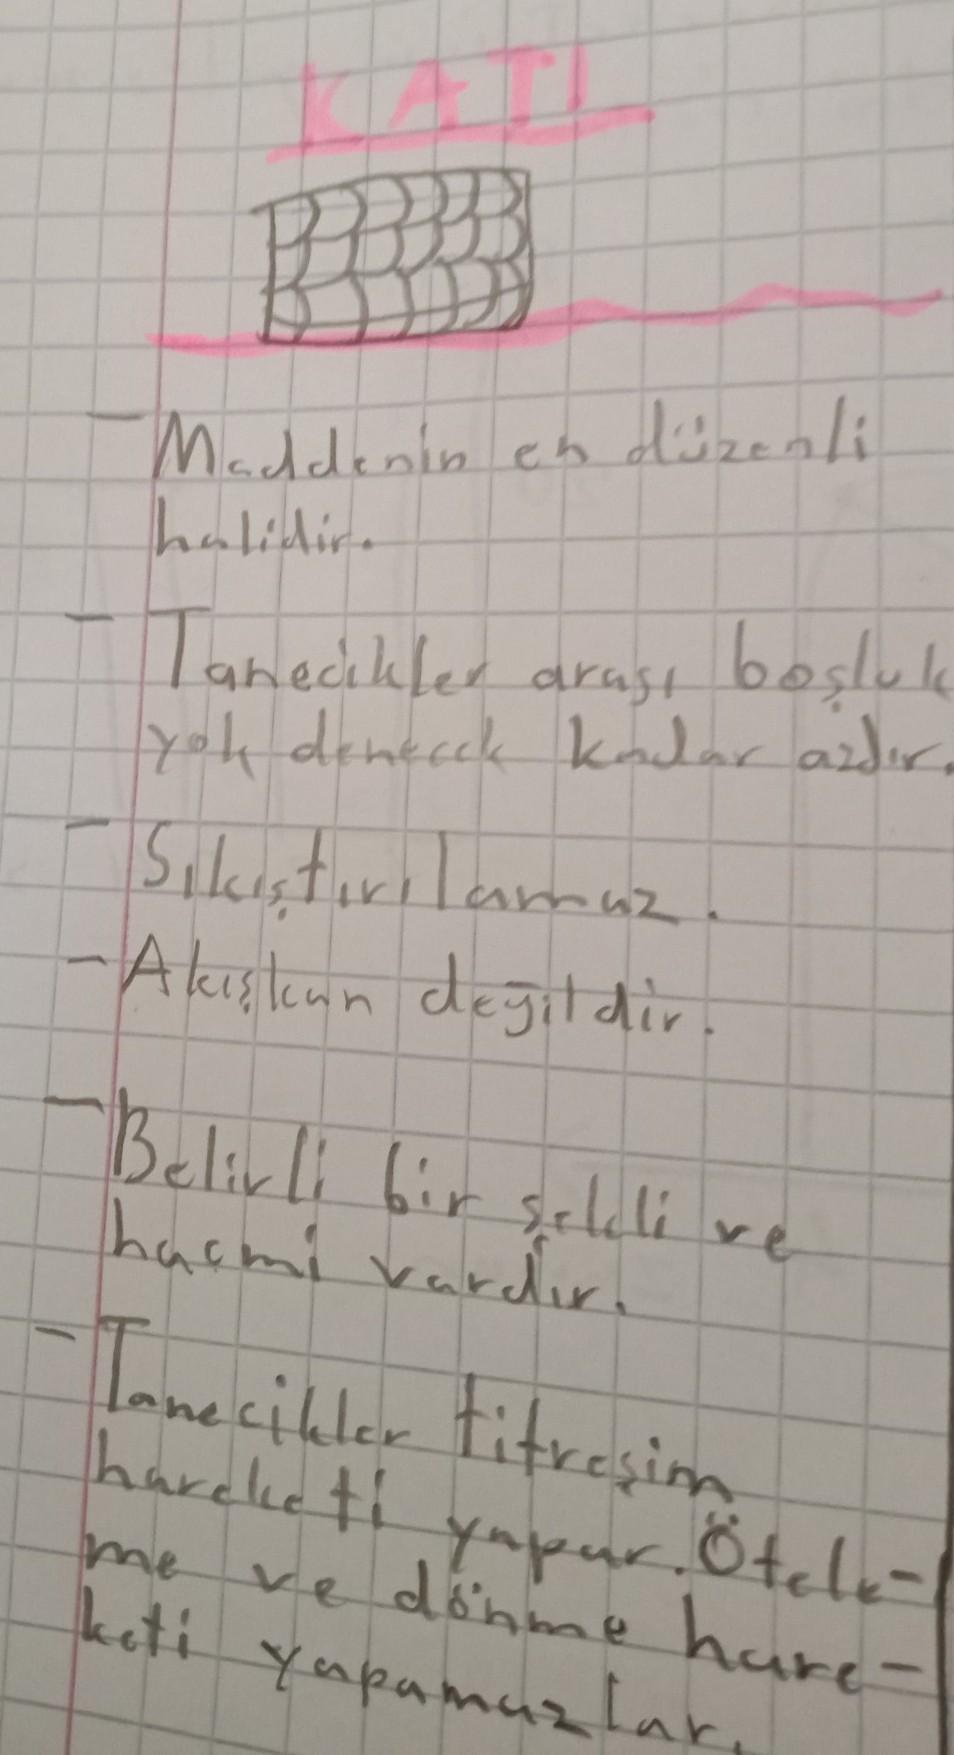 KATI
- Maddenin en düzenli
halidir.
- Tanecikler arası boşluk
yok denecek kadar azdır.
- Sıkıştırılamaz.
- Akışkan değildir.
- Belirli bir şekli ve
hacmi vardır.
- Tanecikler titreşim
hareketi yapar. Ötele-
me ve dönme hare-
keti yapamazlar.